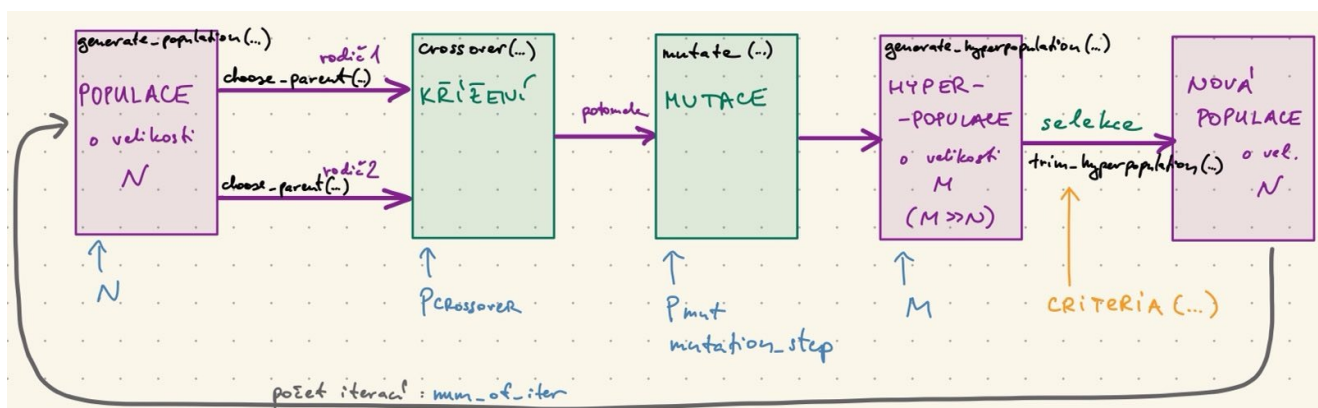 generate_population(...)
POPULACE
o velikosti
N
rodič1
choose_parent(..)
rodič2
choose_parent(...)
crossover(...)
KŘÍŽENÍ
potomek
mutate (...)
MUTACE
generate_hyperpopulation(...)
HYPER-
-POPULACE
o velikosti
M
(M>>N)
selekce
trim_hyperpopulation(...)
NOVÁ
POPULACE
o vel.
N
N
PCROSSOVER
Pmut
mutation_step
M
CRITERIA (...)
počet iterací : num_of_iter